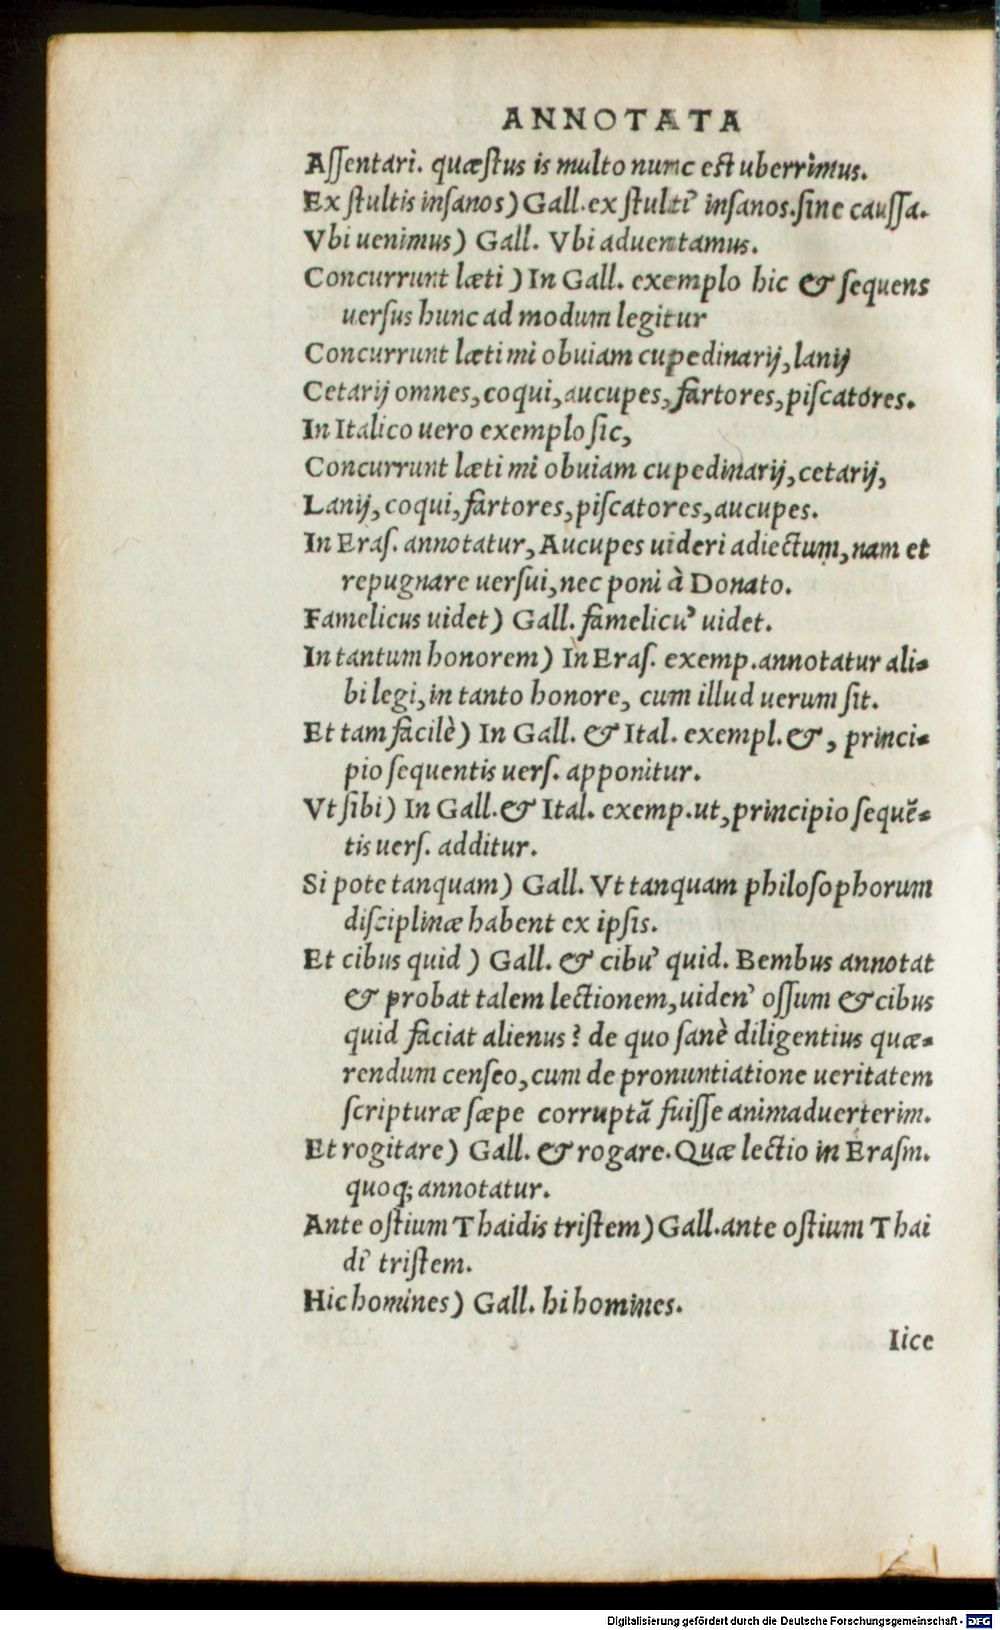 ANNOTATA
Aſſentari. quæſtus is multo nunc est uberrimus.
Ex ſtultis inſanos) Gall. ex ſtulti' inſanos. ſine cauſſa.
Vbi uenimus) Gall. Vbi aduentamus.
Concurrunt læti) In Gall. exemplo hic & ſequens
uerſus hunc ad modum legitur
Concurrunt læti mi obuiam cupedinarij, lanij
Cetarij omnes, coqui, aucupes, fartores, piſcatores.
In Italico uero exemplo ſic,
Concurrunt læti mi obuiam cupedinarij, cetarij,
Lanij, coqui, fartores, piſcatores, aucupes.
In Eraſ. annotatur, Aucupes uideri adiectum, nam et
repugnare uerſui, nec poni à Donato.
Famelicus uidet) Gall. famelicu' uidet.
In tantum honorem) In Eraſ. exemp. annotatur ali-
bi legi, in tanto honore, cum illud uerum ſit.
Et tam facilè) In Gall. & Ital. exempl. &, princi-
pio ſequentis uerſ. apponitur.
Vt ſibi) In Gall. & Ital. exemp. ut, principio ſequẽ-
tis uerſ. additur.
Si pote tanquam) Gall. Vt tanquam philoſophorum
diſciplinæ habent ex ipſis.
Et cibus quid) Gall. & cibu' quid. Bembus annotat
& probat talem lectionem, uiden' oſſum & cibus
quid faciat alienus? de quo ſanè diligentius quæ-
rendum cenſeo, cum de pronuntiatione ueritatem
ſcripturæ ſæpe corruptã fuiſſe animaduerterim.
Et rogitare) Gall. & rogare. Quæ lectio in Eraſm.
quoq; annotatur.
Ante oſtium Thaidis triſtem) Gall. ante oſtium Thai
di' triſtem.
Hic homines) Gall. hi homines.
Iice
Digitalisierung gefördert durch die Deutsche Forschungsgemeinschaft - DFG